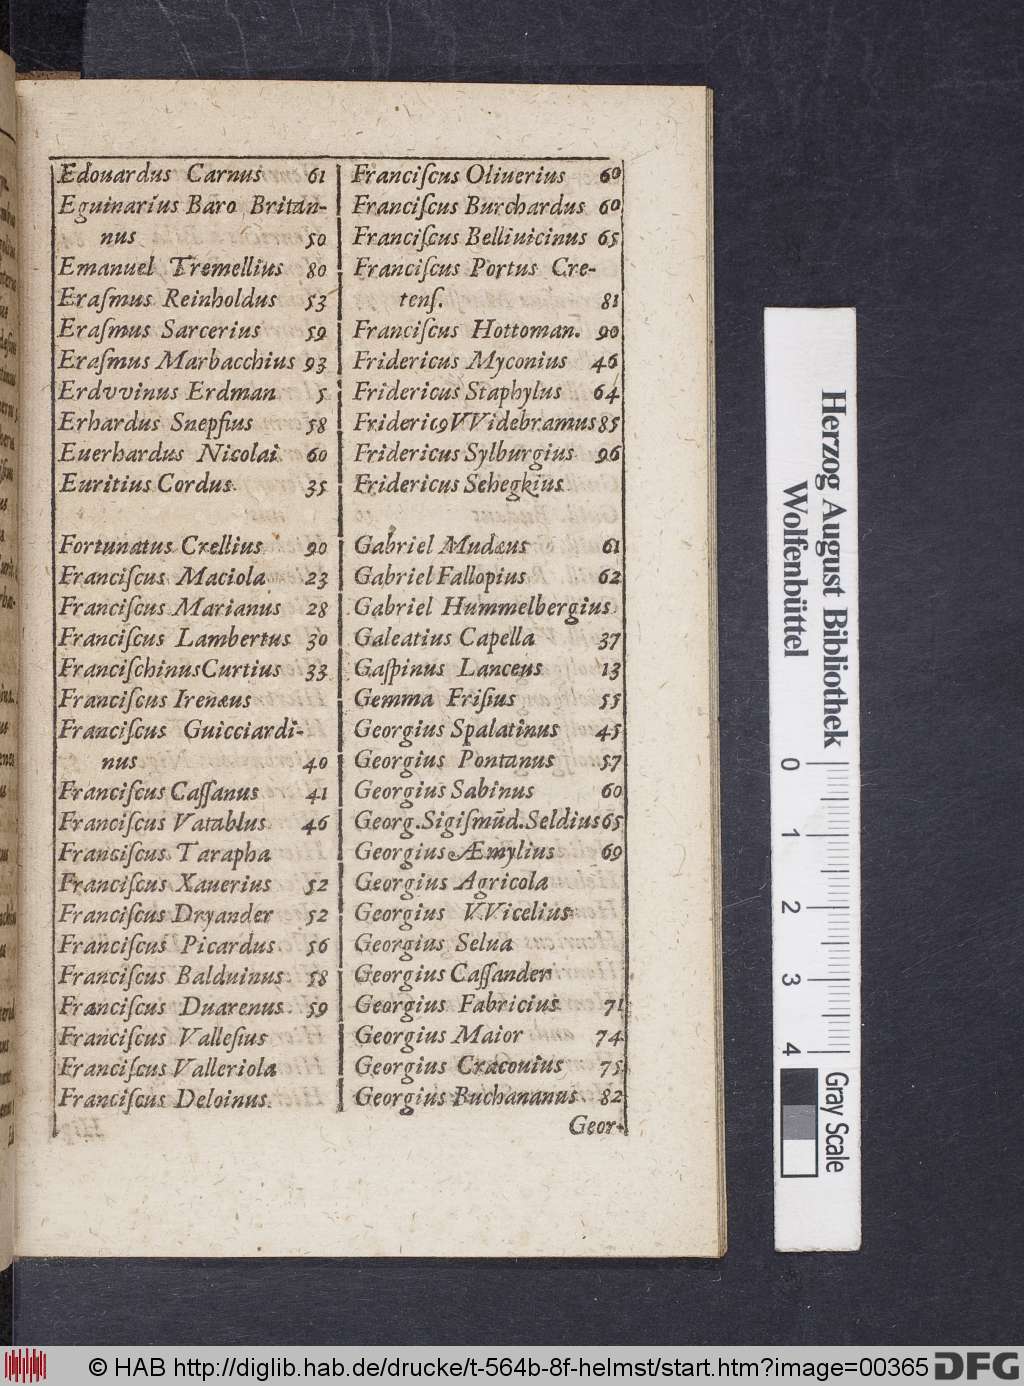 Edouardus Carnus 61
Eguinarius Baro Britan-
nus 50
Emanuel Tremellius 80
Eraſmus Reinholdus 53
Eraſmus Sarcerius 59
Eraſmus Marbacchius 93
Erdvvinus Erdman 5
Erhardus Snepfius 58
Euerhardus Nicolai 60
Euritius Cordus 35
Fortunatus Crellius 90
Franciſcus Maciola 23
Franciſcus Marianus 28
Franciſcus Lambertus 30
Franciſchinus Curtius 33
Franciſcus Irenæus
Franciſcus Guicciardi-
nus 40
Franciſcus Caſſanus 41
Franciſcus Vatablus 46
Franciſcus Tarapha
Franciſcus Xauerius 52
Franciſcus Dryander 52
Franciſcus Picardus 56
Franciſcus Balduinus 58
Franciſcus Duarenus 59
Franciſcus Valleſius
Franciſcus Valleriola
Franciſcus Deloinus
Franciſcus Oliuerius 60
Franciſcus Burchardus 60
Franciſcus Belliuicinus 65
Franciſcus Portus Cre-
tenſ. 81
Franciſcus Hottoman. 90
Fridericus Myconius 46
Fridericus Staphylus 64
Fridericꝰ VVidebramus 85
Fridericus Sylburgius 96
Fridericus Sehegkius
Gabriel Mudæus 61
Gabriel Fallopius 62
Gabriel Hummelbergius
Galeatius Capella 37
Gaſpinus Lanceus 13
Gemma Friſius 55
Georgius Spalatinus 45
Georgius Pontanus 57
Georgius Sabinus 60
Georg. Sigiſmūd. Seldius 65
Georgius Æmylius 69
Georgius Agricola
Georgius VVicelius
Georgius Selua
Georgius Caſſander
Georgius Fabricius 71
Georgius Maior 74
Georgius Cracouius 75
Georgius Buchananus 82
Geor-
Herzog August Bibliothek
Wolfenbüttel
0 1 2 3 4
Gray Scale
© HAB http://diglib.hab.de/drucke/t-564b-8f-helmst/start.htm?image=00365
DFG